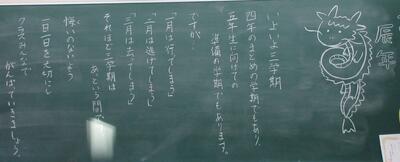 辰年
いよいよ三学期
四年のまとめの学期でもあり、
五年生に向けての
準備の学期でもあります。
ですが…
「一月は行ってしまう」
「二月は逃げてしまう」
「三月は去ってしまう」
それほど三学期は
あっという間で
悔いのないよう
一日一日を大切に
クラスみんなで
がんばっていきましょう。